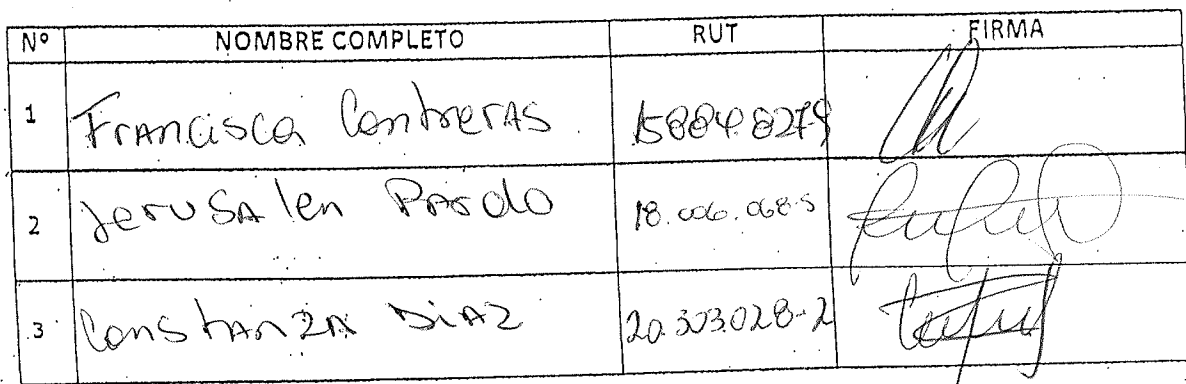 Nº NOMBRE COMPLETO RUT FIRMA
1 Francisca Contreras
2 Jerusalen Pardo 18.006.068-5
3 Constanza Diaz 20.303.028-2